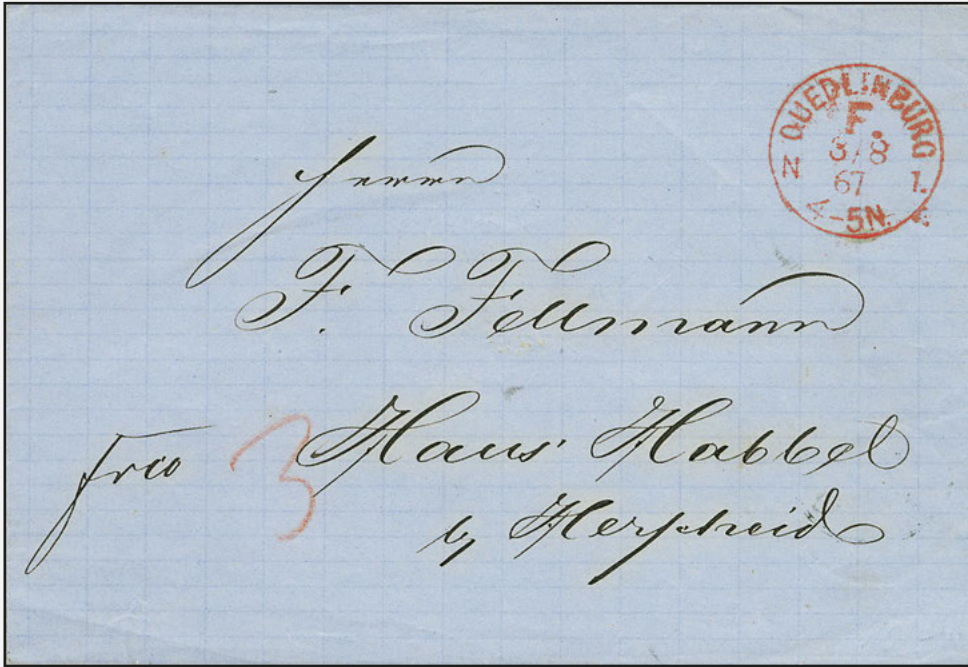 QUEDLINBURG
F.
3/8
N 67 1.
4-5N.
Herrn
F. Fellmann
frco 3 Haus Habbel
b/ Herscheid